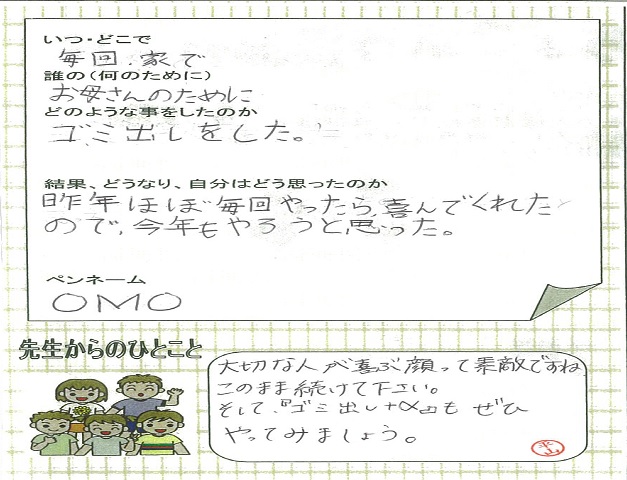 いつ・どこで
毎回、家で
誰の(何のために)
お母さんのために
どのような事をしたのか
ゴミ出しをした。
結果、どうなり、自分はどう思ったのか
昨年ほぼ毎回やったら、喜んでくれた
ので、今年もやろうと思った。
ペンネーム
OMO
先生からのひとこと
大切な人が喜ぶ顔って素敵ですね
このまま続けて下さい。
そして、『ゴミ出し+α』も ぜひ
やってみましょう。